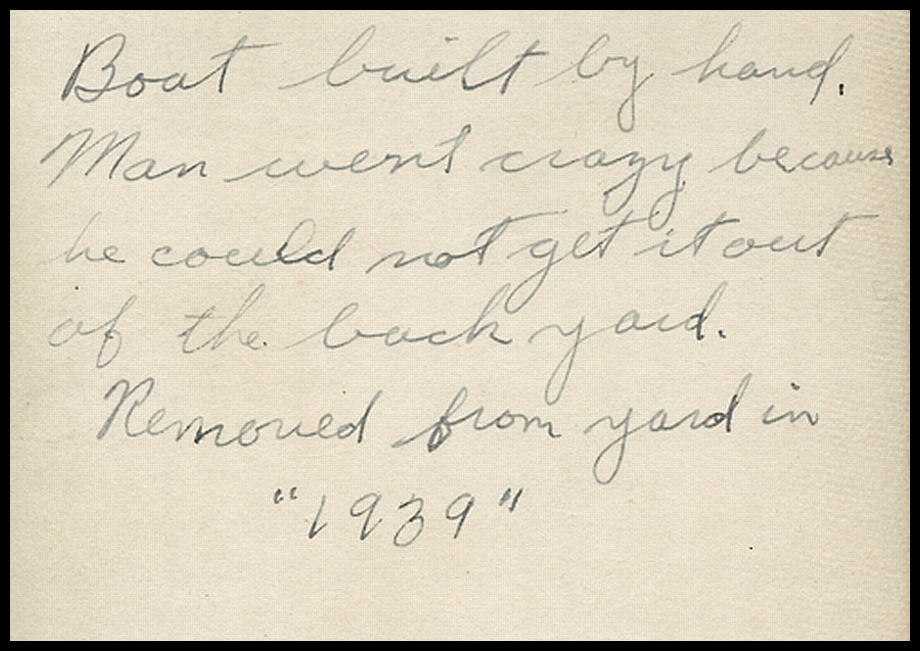 Boat built by hand.
Man went crazy because
he could not get it out
of the back yard.
Removed from yard in
"1939"